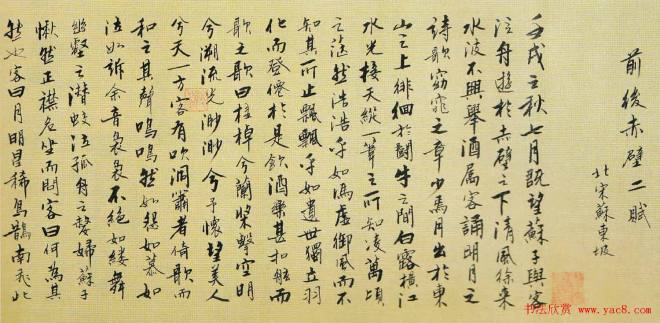 前後赤壁二賦
北宋蘇東坡
壬戌之秋七月既望蘇子與客
泛舟遊於赤壁之下清風徐来
水波不興舉酒属客誦明月之
詩歌窈窕之章少焉月出於東
山之上徘徊於闘牛之間白露横江
水光接天縱一葦之所如凌萬頃
之茫然浩浩乎如馮虛御風而不
知其所止飄飄乎如遺世獨立羽
化而登僊於是飲酒樂甚扣舷而
歌之歌曰桂棹兮蘭槳擊空明
兮溯流光渺渺兮予懷望美人
兮天一方客有吹洞簫者倚歌而
和之其聲嗚嗚然如怨如慕如
泣如訴余音裊裊不絕如縷舞
幽壑之潛蛟泣孤舟之嫠婦蘇子
愀然正襟危坐而問客曰何為其
然也客曰月明星稀烏鵲南飛此
书法欣赏 www.yac8.com